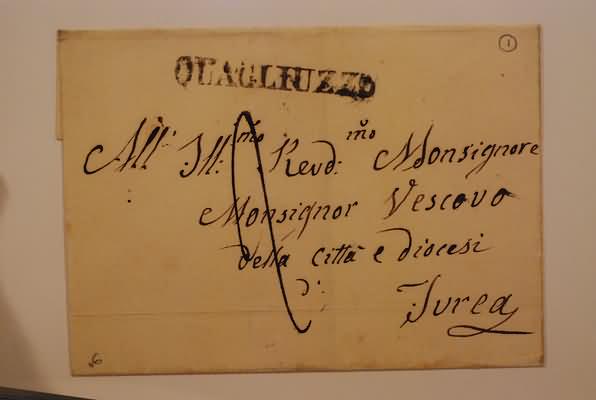 1
QUAGLIUZZO
All' Ill:mo Revd:mo Monsignore
Monsignor Vescovo
della Città e diocesi
di
Ivrea